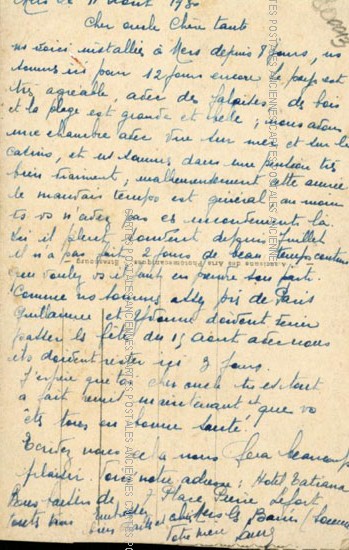 Mers le 11 Août 19
Cher oncle Chère tante
ns voici installés à Mers depuis 8 jours, ns
sommes ici pour 12 jours encore le pays est
très agréable, avec des falaises, des bois
et la plage est grande et belle; nous avons
une chambre avec vue sur mer et sur le
casino, et ns sommes dans une pension très
bien vraiment, malheureusement cette année
le mauvais temps est général au moins
vs n'avez pas cet inconvénient là.
Ici il pleut, pendant depuis Juillet
il n'a pas fait 2 jours de beau temps
que voulez vs il faut en prendre son parti.
Comme ns sommes assez près de Paris
Guillaume et Yvonne doivent venir
passer les fêtes du 15 août avec nous
ils doivent rester ici 3 jours.
J'espère que toi cher oncle tu es tout
à fait remis maintenant, et que vs
êtes tous en bonne santé.
Ecrivez nous cela nous fera beaucoup
plaisir. Voici notre adresse: Hotel Tatiana
7 Place Pierre Lefort
Mers les Bains (Somme)
CARTES POSTALES ANCIENNES